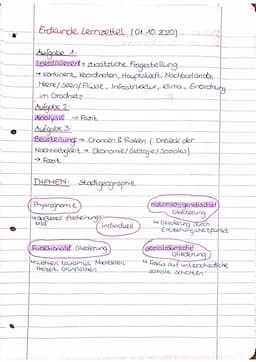 Erdkunde Lernzettel (01.10.2020)
Aufgabe 1:
Lokalisieren + zusätzliche Fragestellung
→ Kontinent, Koordinaten, Hauptstadt, Nachbarländer,
Meere/Seen/Flüsse, Infrastruktur, Klima, Einordnung
im Gradnetz
Aufgabe 2:
Analyse → Fazit
Aufgabe 3:
Beurteilung → Chancen & Risiken (Dreieck der
Nachhaltigkeit → Ökonomie/Ökologie/Soziales)
→ Fazit
THEMEN: Stadtgeographie
Physiognomie
historisch-genetische
Gliederung
↳ äußeres Erscheinungs-
bild
individuell
↳ Gliederung durch
Entstehungszeitpunkt
Funktionale Gliederung
sozialräumliche
Gliederung
↳ Wohnen, Tourismus, Nachtleben,
Freizeit, Grünflächen
↳ Fokus auf unterschiedliche
soziale Schichten